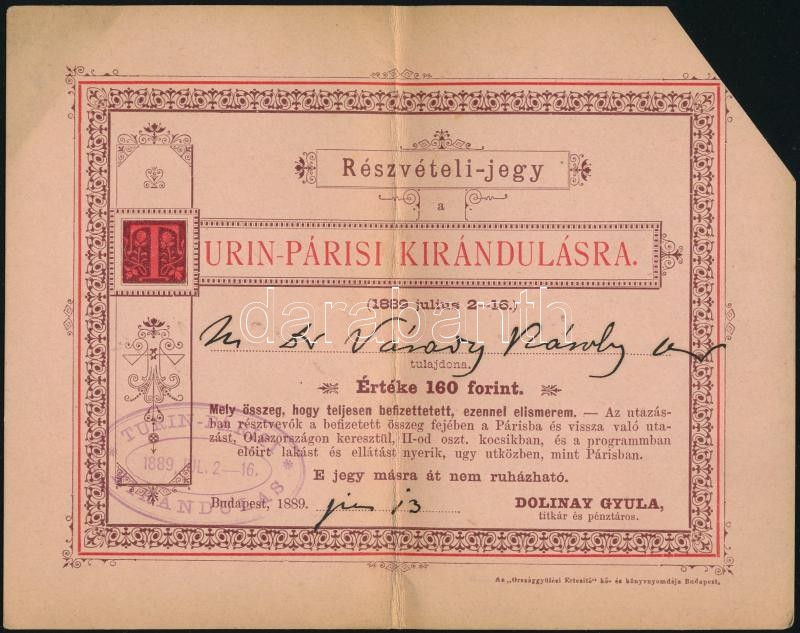 Részvételi-jegy
a
TURIN-PÁRISI KIRÁNDULÁSRA.
(1889 julius 2—16.)
Dr Várady Károly ur
tulajdona.
Értéke 160 forint.
Mely összeg, hogy teljesen befizettetett, ezennel elismerem. — Az utazás-
ban résztvevők a befizetett összeg fejében a Párisba és vissza való uta-
zást, Olaszországon keresztül, II-od oszt. kocsikban, és a programmban
előirt lakást és ellátást nyerik, ugy utközben, mint Párisban.
E jegy másra át nem ruházható.
Budapest, 1889. jun 13
DOLINAY GYULA,
titkár és pénztáros.
TURIN-PÁRISI
1889 JUL. 2—16.
KIRÁNDULÁS
Az „Országgyülési Értesitő" kő- és könyvnyomdája Budapest.
darabanth